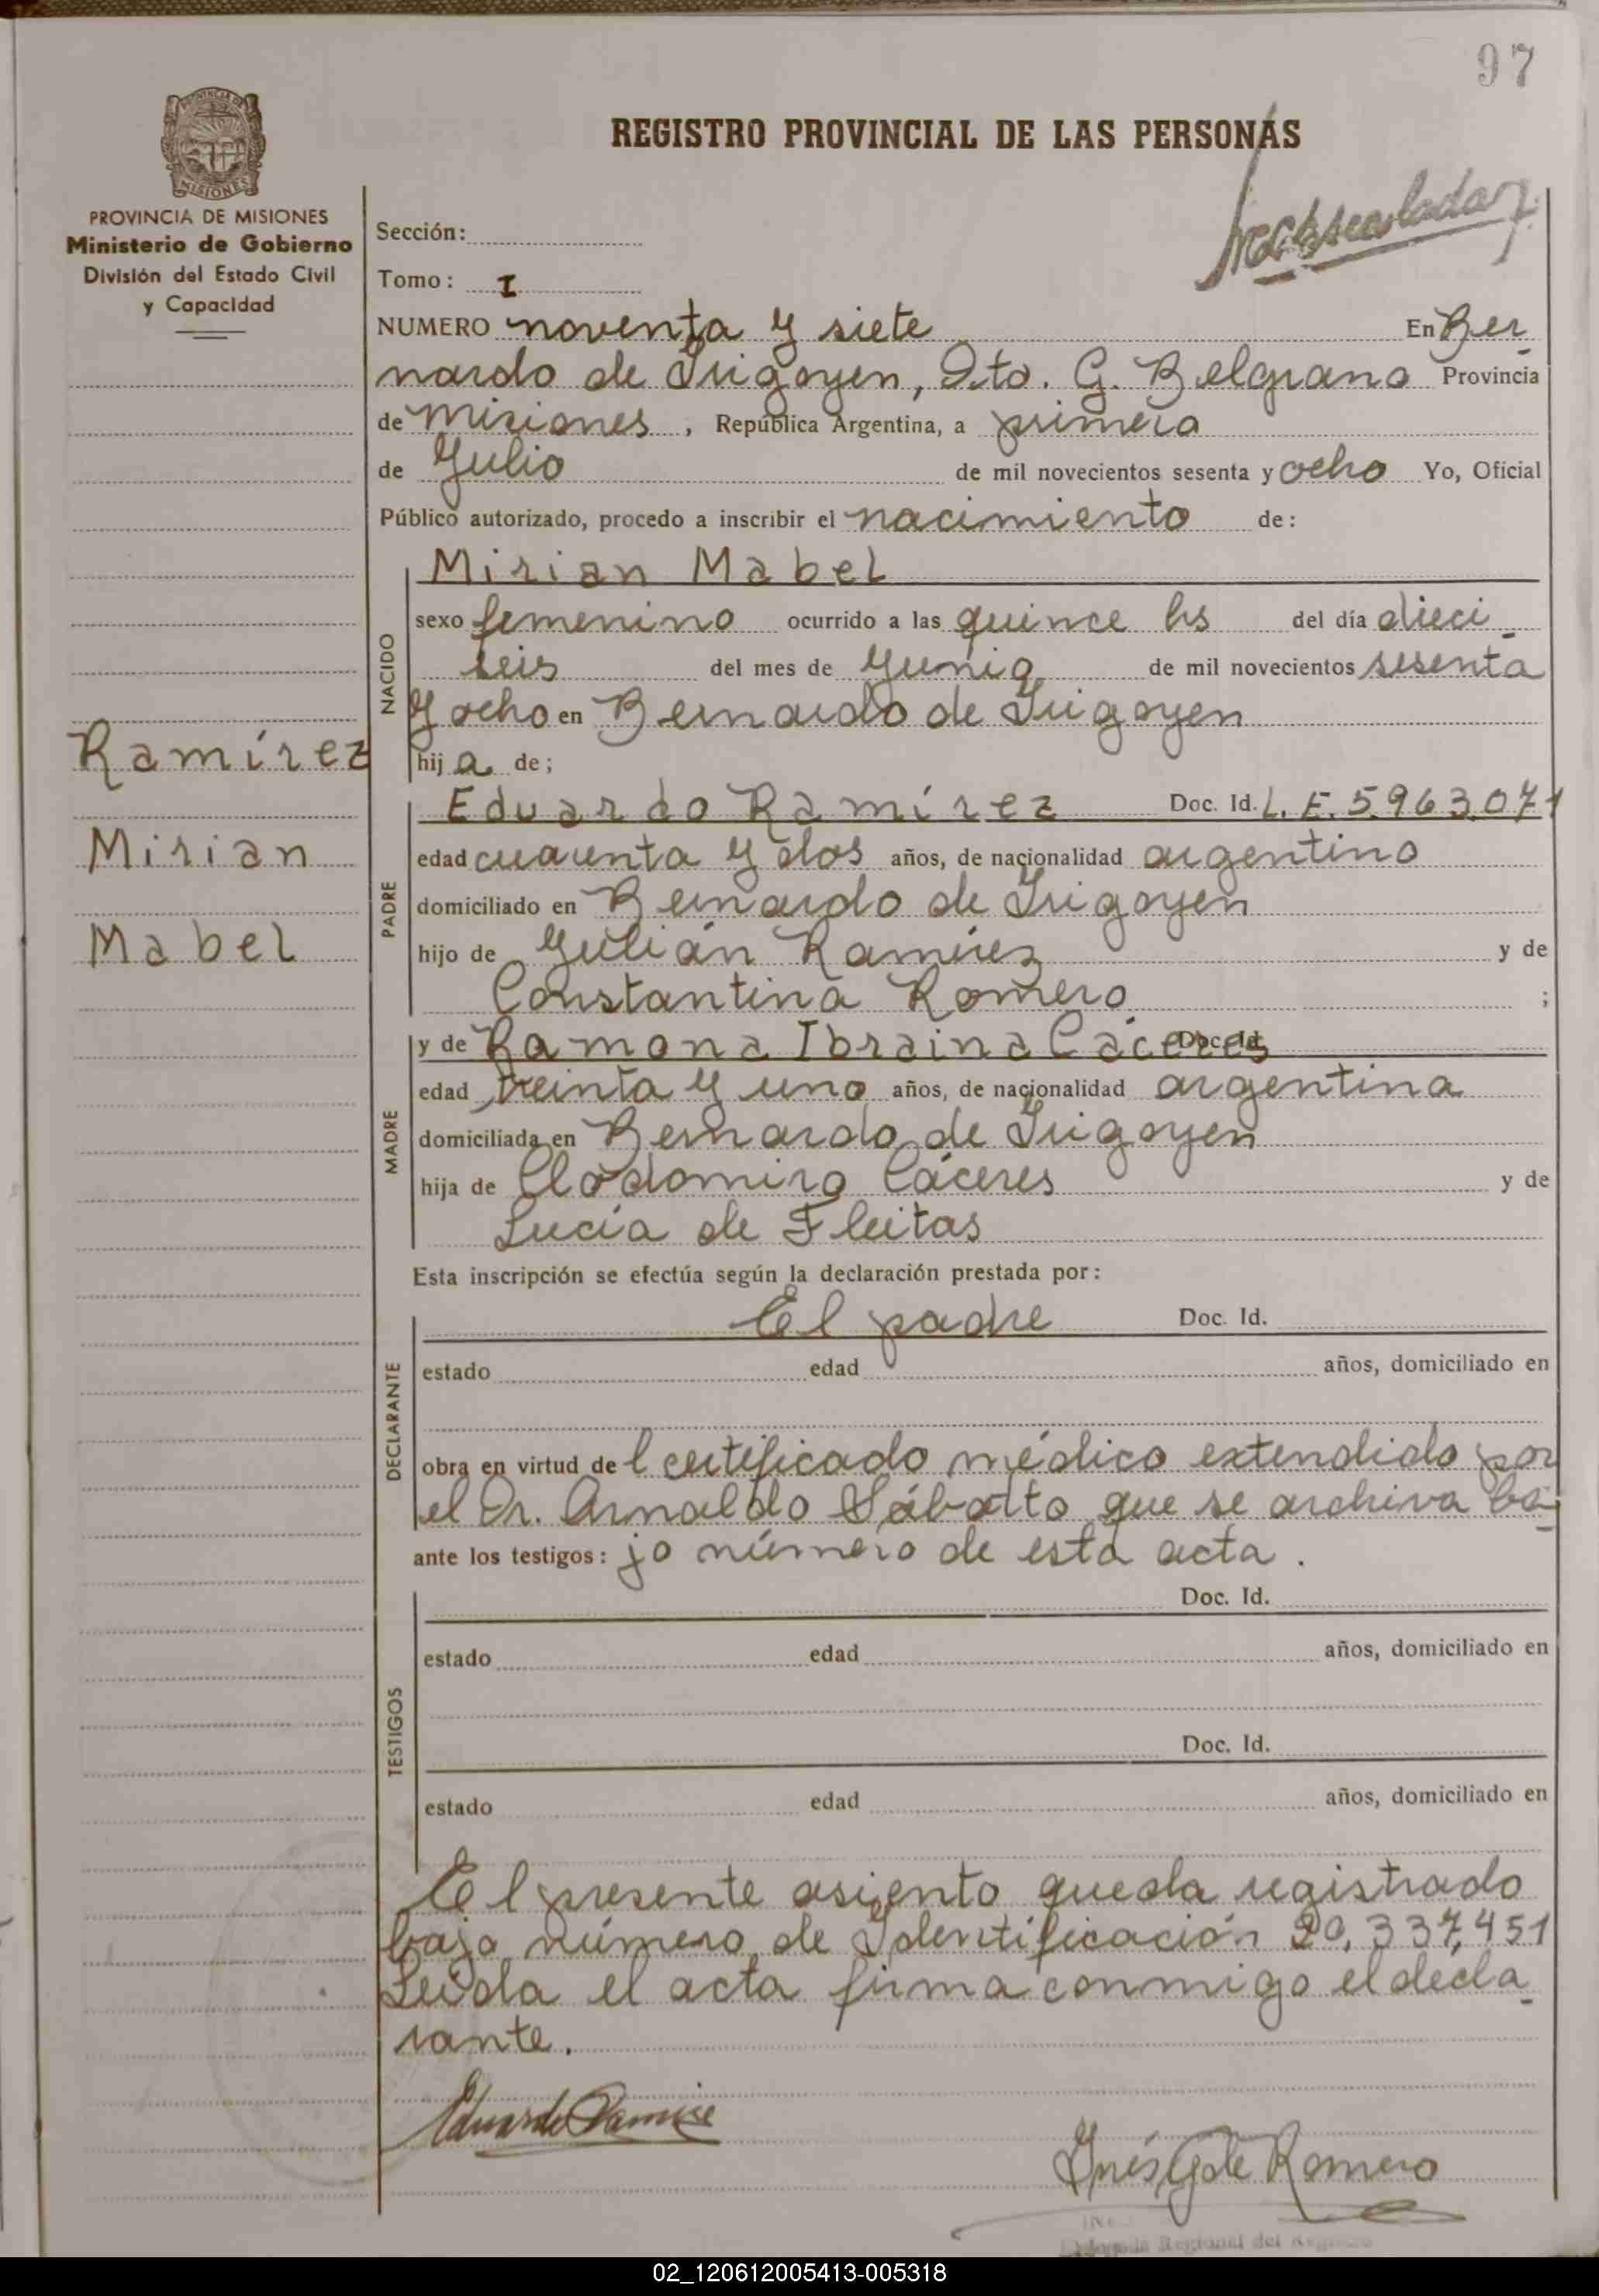 97
PROVINCIA DE MISIONES
REGISTRO PROVINCIAL DE LAS PERSONAS
PROVINCIA DE MISIONES
Ministerio de Gobierno
División del Estado Civil
y Capacidad
Sección:
Tomo: I
NUMERO noventa y siete En Ber-
nardo de Irigoyen, Dto. G. Belgrano Provincia
de Misiones, República Argentina, a primero
de Julio de mil novecientos sesenta y ocho Yo, Oficial
Público autorizado, procedo a inscribir el nacimiento de:
NACIDO
Mirian Mabel
sexo femenino ocurrido a las quince hs del día dieci-
seis del mes de Junio de mil novecientos sesenta
y ocho en Bernardo de Irigoyen
hija de;
Ramírez
Mirian
Mabel
PADRE
Eduardo Ramírez Doc. Id. L. E. 5.963.071
edad cuarenta y dos años, de nacionalidad argentino
domiciliado en Bernardo de Irigoyen
hijo de Julián Ramírez y de
Constantina Romero ;
MADRE
y de Ramona Ibraina Cáceres Doc. Id.
edad treinta y uno años, de nacionalidad argentina
domiciliada en Bernardo de Irigoyen
hija de Clodomiro Cáceres y de
Lucía de Fleitas
Esta inscripción se efectúa según la declaración prestada por:
DECLARANTE
El padre Doc. Id.
estado edad años, domiciliado en
obra en virtud del certificado médico extendido por
el Dr. Arnaldo Sábatto que se archiva ba-
ante los testigos: jo número de esta acta.
TESTIGOS
Doc. Id.
estado edad años, domiciliado en
Doc. Id.
estado edad años, domiciliado en
El presente asiento queda registrado
bajo número de Identificación 20.337.451
Leída el acta firma conmigo el decla-
rante.
Eduardo Ramirez
Inés G de Romero
Regional del
02_120612005413-005318